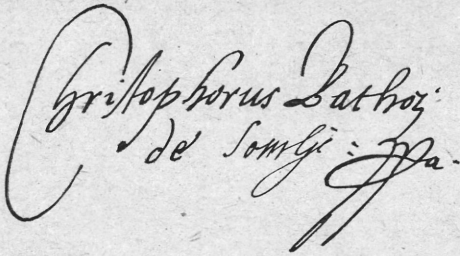 Christophorus Bathori
de Somlyo